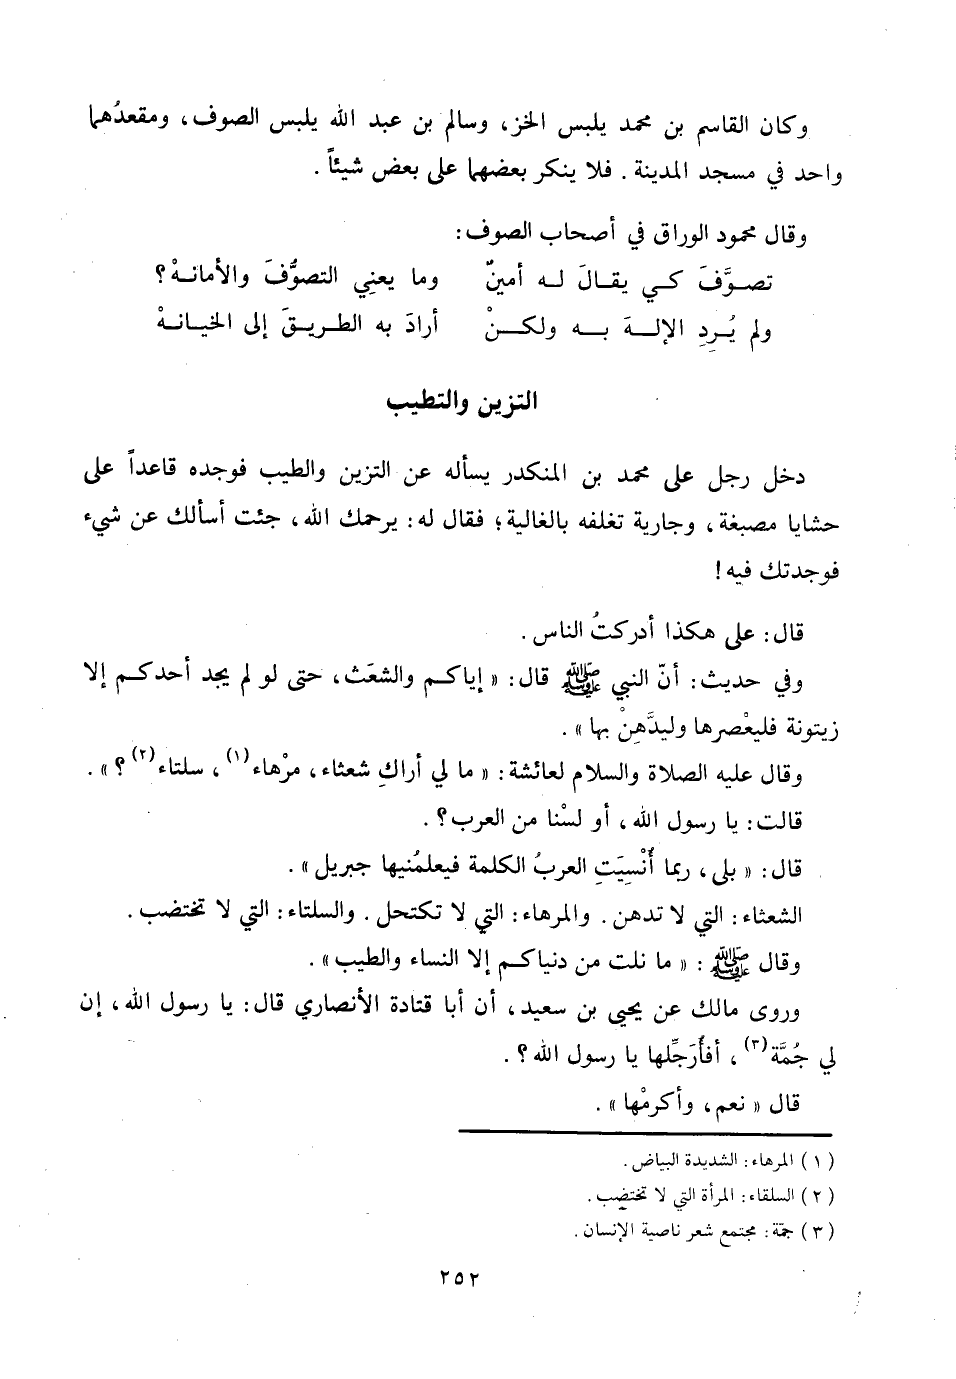 وكان القاسم بن محمد يلبس الخز، وسالم بن عبد الله يلبس الصوف، ومقعدُهما
واحد في مسجد المدينة. فلا ينكر بعضهما على بعض شيئاً.
وقال محمود الوراق في أصحاب الصوف:
تصوَّفَ كي يقالَ له أمينٌ وما يعنِي التصوُّفَ والأمانهْ؟
ولم يُرِدِ الإلهَ به ولكنْ أرادَ به الطريقَ إلى الخيانهْ
التزين والتطيب
دخل رجل على محمد بن المنكدر يسأله عن التزين والطيب فوجده قاعداً على
حشايا مصبغة، وجارية تغلفه بالغالية؛ فقال له: يرحمك الله، جئت أسألك عن شيء
فوجدتك فيه!
قال: على هكذا أدركتُ الناس.
وفي حديث: أنّ النبي ﷺ قال: «إياكم والشعَث، حتى لو لم يجد أحدكم إلا
زيتونة فليعْصرها وليدَّهِنْ بها».
وقال عليه الصلاة والسلام لعائشة: «ما لي أراكِ شعثاء، مرْهاء(١)، سلتاء(٢)؟».
قالت: يا رسول الله، أو لسْنا من العرب؟.
قال: «بلى، ربما أُنْسِيَتِ العربُ الكلمة فيعلمُنيها جبريل».
الشعثاء: التي لا تدهن. والمرهاء: التي لا تكتحل. والسلتاء: التي لا تختضب.
وقال ﷺ: «ما نلت من دنياكم إلا النساء والطيب».
وروى مالك عن يحيى بن سعيد، أن أبا قتادة الأنصاري قال: يا رسول الله، إن
لي جُمَّة(٣)، أفأُرَجِّلها يا رسول الله؟.
قال «نعم، وأكرمْها».
(١) المرهاء: الشديدة البياض.
(٢) السلقاء: المرأة التي لا تختضب.
(٣) جمّة: مجتمع شعر ناصية الإنسان.
٢٥٢